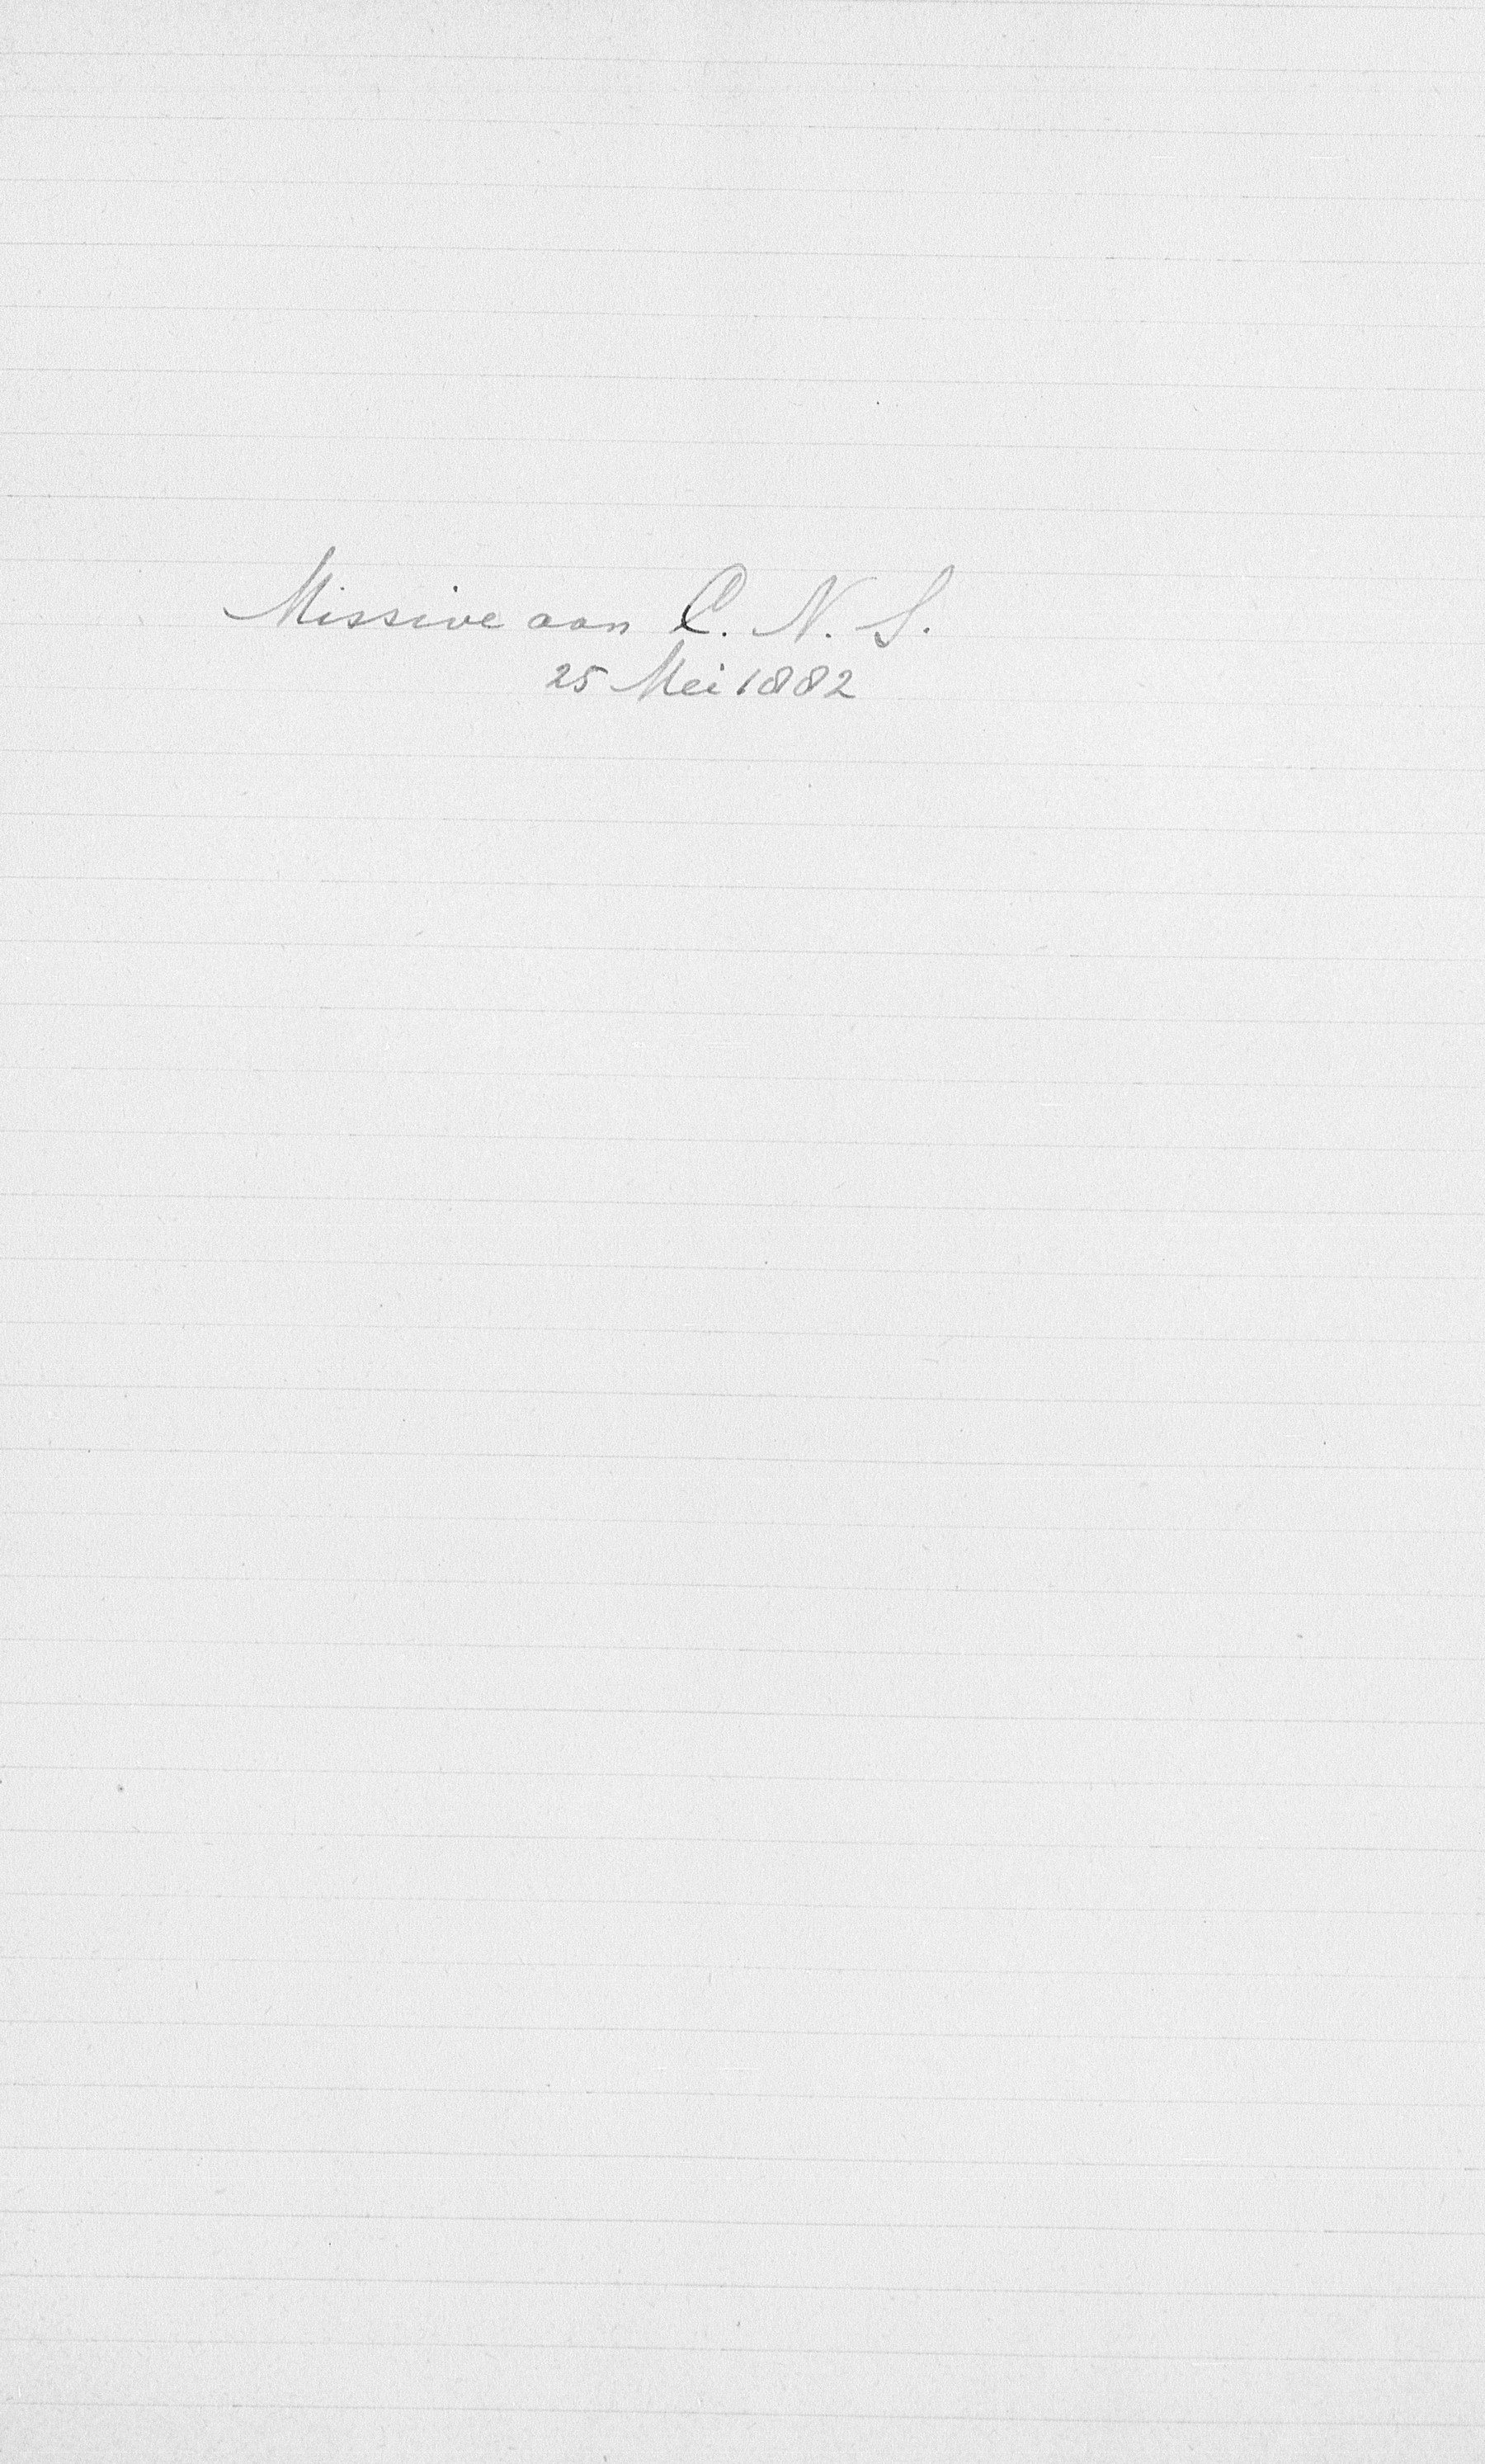 Missive aan C. N. S.
25 Mei 1882